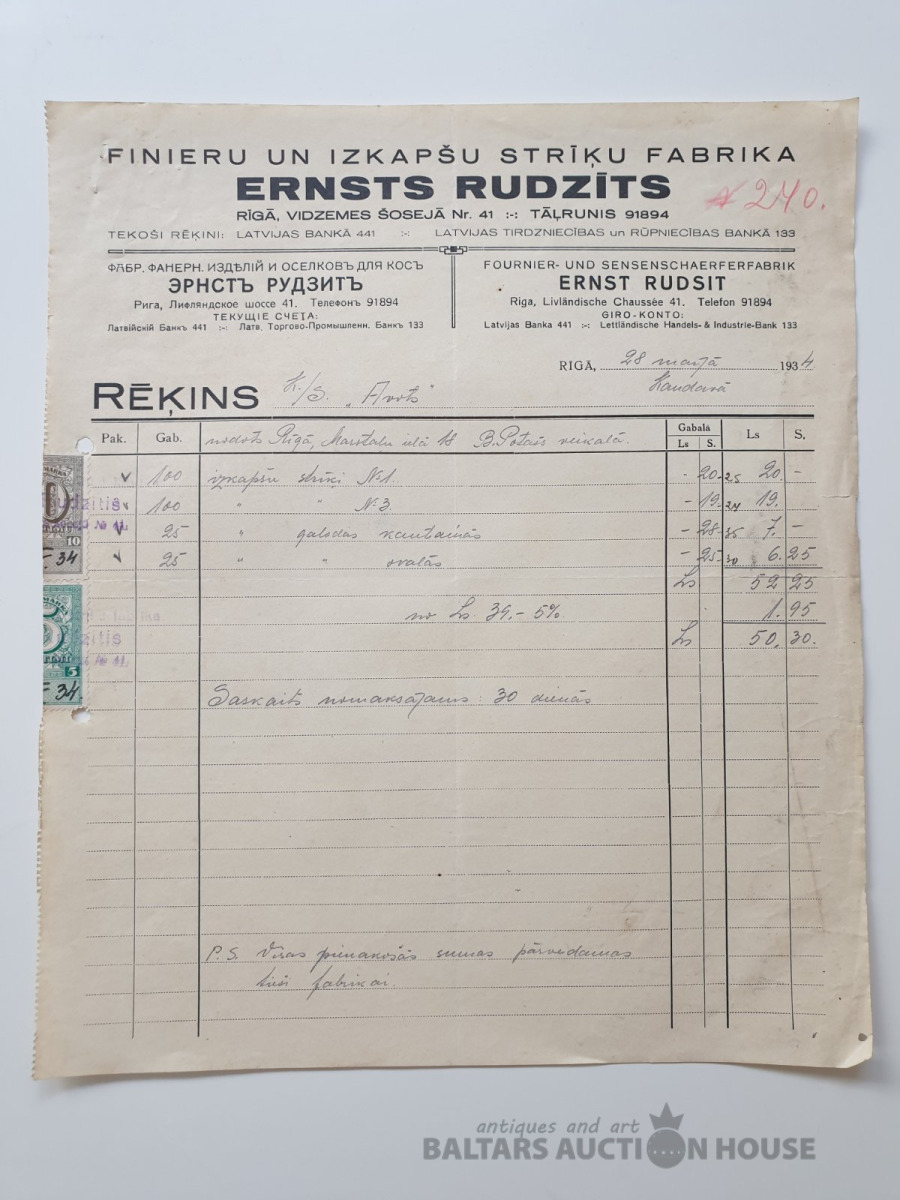 FINIERU UN IZKAPŠU STRĪĶU FABRIKA
ERNSTS RUDZĪTS
№ 240.
RĪGĀ, VIDZEMES ŠOSEJĀ Nr. 41 :-: TĀĻRUNIS 91894
TEKOŠI RĒĶINI: LATVIJAS BANKĀ 441 :-: LATVIJAS TIRDZNIECĪBAS un RŪPNIECĪBAS BANKĀ 133
ФАБР. ФАНЕРН. ИЗДѢЛІЙ И ОСЕЛКОВЪ ДЛЯ КОСЪ
ЭРНСТЪ РУДЗИТЪ
Рига, Лифляндское шоссе 41. Телефонъ 91894
ТЕКУЩІЕ СЧЕТА:
Латвійскій Банкъ 441 :-: Латв. Торгово-Промышленн. Банкъ 133
FOURNIER- UND SENSENSCHAERFERFABRIK
ERNST RUDSIT
Riga, Livländische Chaussée 41. Telefon 91894
GIRO-KONTO:
Latvijas Banka 441 :-: Lettländische Handels- & Industrie-Bank 133
RĪGĀ, 28 maijā 1934
RĒĶINS K/S. „Avots" Kandavā
Pak. Gab. nodots Rīgā, Marstaļu ielā 18 B. Potašs veikalā. Gabalā Ls S. Ls S.
100 izkapšu strīķi №1. - 20. 25 20. -
100 " " №3. - 19. 24 19.
25 " galodas kantainās - 28. 35 7. -
25 " " ovalās - 25. 30 6. 25
Ls 52 25
no Ls. 39,- 5% 1. 95
Ls 50. 30.
Saskaits nomaksājams 30 dienās
P.S. Visas pienākošās sumas pārvedamas
tieši fabrikai.
10
34
5
34
antiques and art
BALTARS AUCTION HOUSE